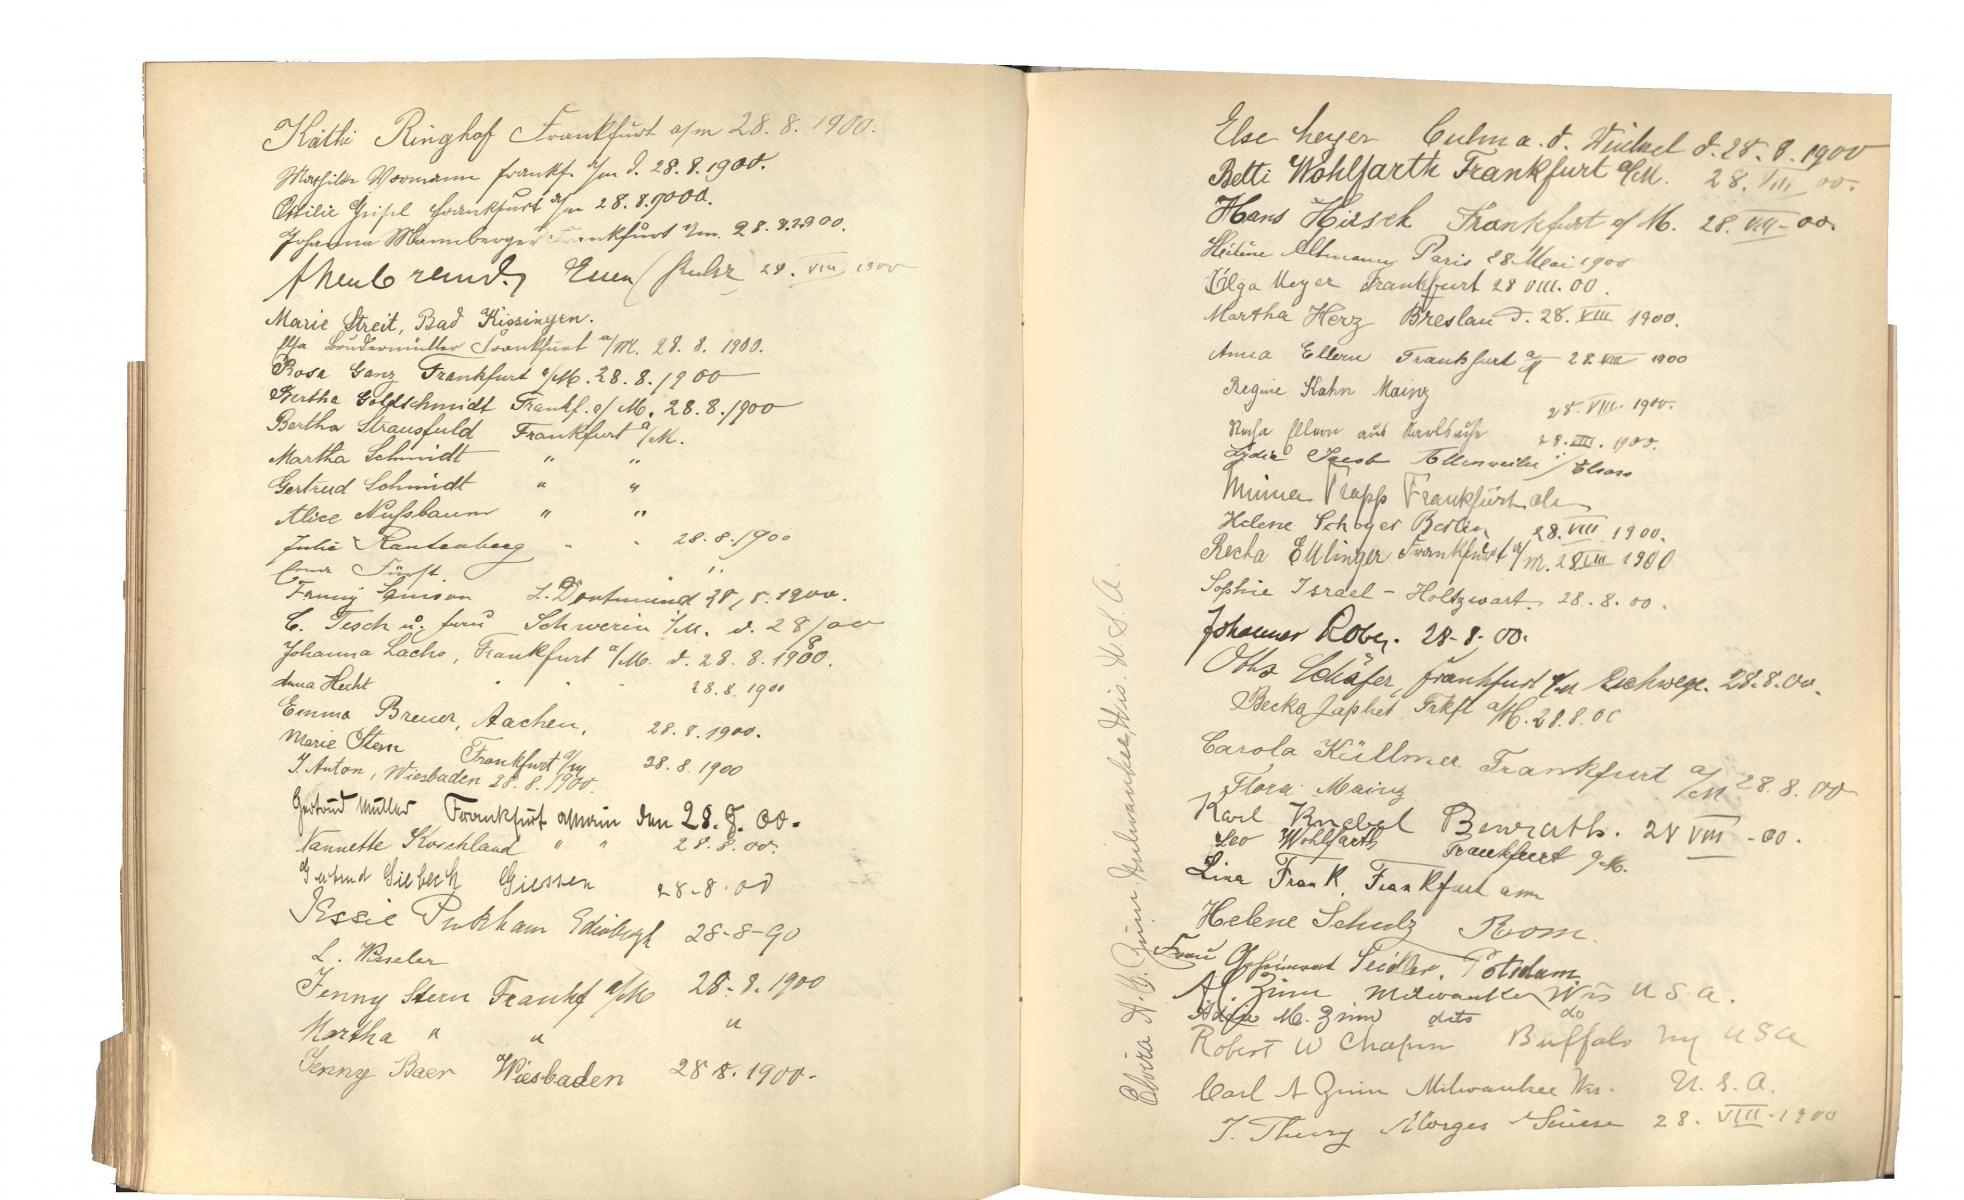 Käthi Ringhof Frankfurt a/m 28. 8. 1900.
Mathilde Wormann Frankf. a/m d. 28. 8. 1900.
Ottilie Geisel Frankfurt a/m 28. 8. 9000.
Johanna Mannberger Frankfurt a/m. 28. 8. 1900.
Essen (Ruhr 28. VIII 1900
Marie Streit, Bad Kissingen.
Elsa Brudermüller Frankfurt a/M. 28. 8. 1900.
Rosa Ganz Frankfurt a/M. 28. 8. 1900
Bertha Goldschmidt Frankf. a/M. 28. 8. 1900
Bertha Strausfuld Frankfurt a/M.
Martha Schmidt " "
Gertrud Schmidt " "
Alice Nußbaum " "
Julie Rautenberg " " 28. 8. 1900
Erna Fürst "
Fanny Simson Dortmund 28. 8. 1900.
C. Tesch u. frau Schwerin i/M. d. 28/8 00
Johanna Lachs, Frankfurt a/M. d. 28. 8. 1900.
Anna Hecht " " " 28. 8. 1900
Emma Breuer, Aachen, 28. 8. 1900.
Marie Stern Frankfurt a/M 28. 8. 1900
J. Anton, Wiesbaden 28. 8. 1900.
Gertrud Müller Frankfurt a Main den 28. 8. 00.
Nannette Koschland " " 28. 8. 00.
Gertrud Siebeck Giessen 28-8-00
Jessie Pinkham Edinburgh 28-8-90
L. Wisseler
Jenny Stern Frankf a/M 28. 8. 1900
Martha " " "
Jenny Baer Wiesbaden 28 8. 1900.
Else Culm a. d. Weichsel d. 28. 8. 1900
Betti Wohlfarth Frankfurt a/M. 28. VIII 00.
Hans Hirsch Frankfurt a/M. 28. VIII - 00.
Hélène Altmann Paris 28 Mai 1900
Olga Meyer Frankfurt 28 VIII. 00.
Martha Herz Breslau d. 28. VIII 1900.
Anna Ellern Frankfurt a/M 28. VIII 1900
Regine Kahn Mainz 28. VIII. 1900.
Ellern aus Karlsruhe 28. VIII. 1900.
Lydia Jacob / Elsass
Minna Trapp Frankfurt
Helene Schoyer Berlin 28. VIII 1900.
Recha Ettlinger Frankfurt a/M. 28 VIII 1900
Sophie Israel - Holtzwart. 28. 8. 00.
Johannes 28-8-00.
Otto Schäfer Frankfurt a/M Eschwege. 28. 8. 00.
Becka Japhet Frkft a/M. 28. 8. 00
Carola Küllmer Frankfurt a/M 28. 8. 00
Flora Mainz
Karl Knebel Benrath. 28 VIII - 00.
Leo Wohlfarth Frankfurt a/M.
Lina Frank, Frankfurt a m
Helene Schulz Rom.
Frau Geheimrat Seidler, Potsdam
A. C. Zinn Milwaukee Wis U S A.
Adele M. Zinn dito do
Robert W Chapin Buffalo NY USA
Carl A Zinn Milwaukee Wis. U. S. A.
J. Thury Morges Suisse 28. VIII. 1900
Elvira H. C. Zinn. Milwaukee, Wis. U. S. A.